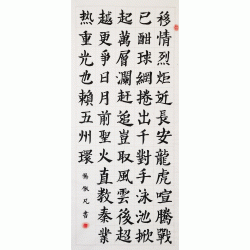 移情烈炬近長安龍虎喧騰戰
已酣球網捲出千對手泳池掀
起萬層瀾赶追豈取風雲後超
越更爭日月前聖火直教秦業
熱重光也賴五州環